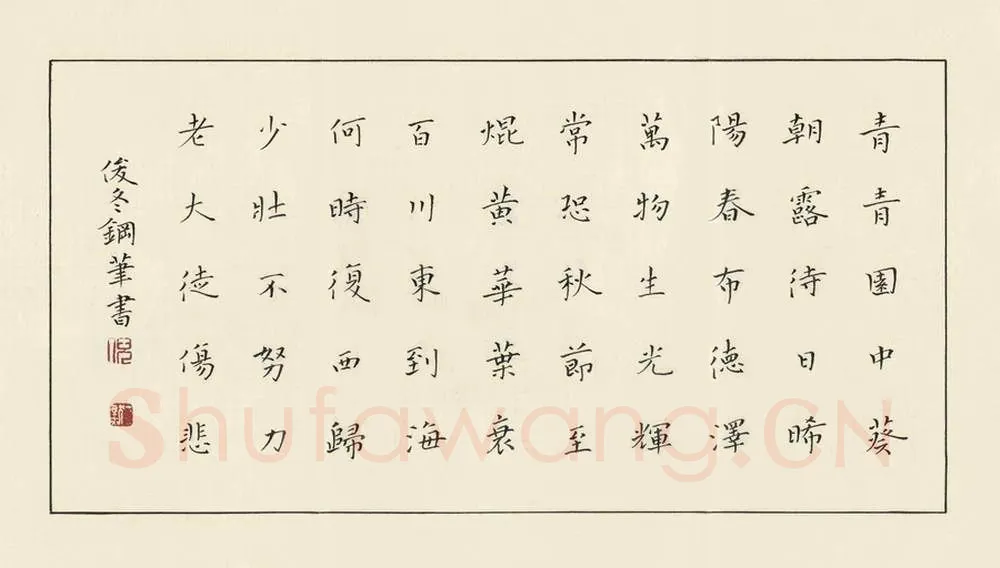 青青園中葵
朝露待日晞
陽春布德澤
萬物生光輝
常恐秋節至
焜黃華葉衰
百川東到海
何時復西歸
少壯不努力
老大徒傷悲
俊冬鋼筆書
Shufawang.CN